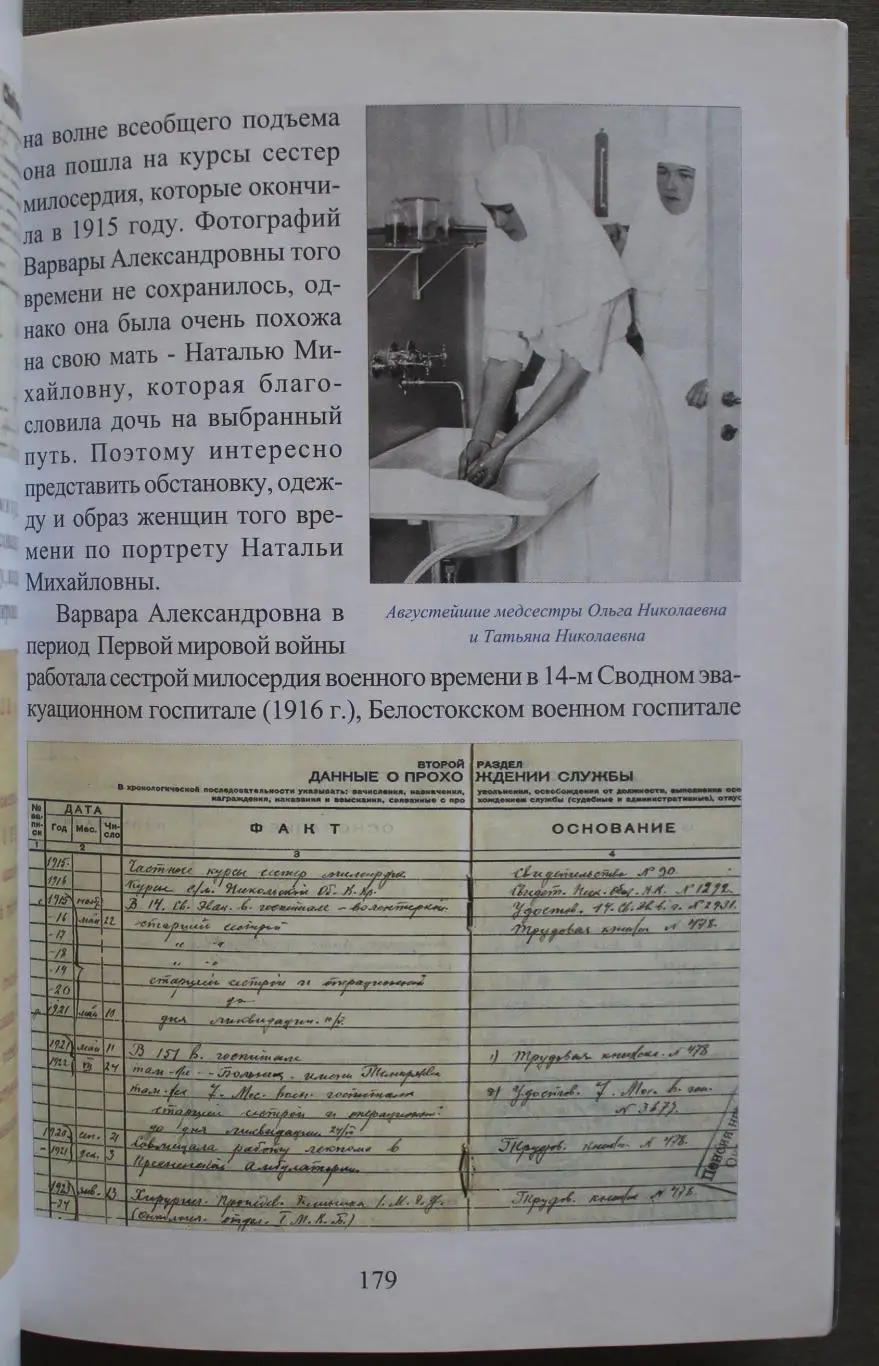 на волне всеобщего подъема
она пошла на курсы сестер
милосердия, которые окончи-
ла в 1915 году. Фотографий
Варвары Александровны того
времени не сохранилось, од-
нако она была очень похожа
на свою мать - Наталью Ми-
хайловну, которая благо-
словила дочь на выбранный
путь. Поэтому интересно
представить обстановку, одеж-
ду и образ женщин того вре-
мени по портрету Натальи
Михайловны.
Августейшие медсестры Ольга Николаевна
и Татьяна Николаевна
Варвара Александровна в
период Первой мировой войны
работала сестрой милосердия военного времени в 14-м Сводном эва-
куационном госпитале (1916 г.), Белостокском военном госпитале
ВТОРОЙ РАЗДЕЛ
ДАННЫЕ О ПРОХО ЖДЕНИИ СЛУЖБЫ
В хронологической последовательности указывать: зачисления, назначения, увольнения, освобождения от должности, выполнения осо
награждения, наказания и взыскания, связанные с про хождением службы (судебные и административные), отпус
№ за- пи- си ДАТА ФАКТ ОСНОВАНИЕ
Год Мес. Чи- сло
1 2 3 4
1915 Частные курсы сестер милосерд. Свидетельство № 90
1916 Курсы с/м. Никольской Об. К. Кр. Свидет. Ник. Общ. К.К. № 1292
с 1915 нояб В 14. Св. Эвак. в. госпитале - волонтеркой Удостов. 14. Св. Эв. в. г. № 2931.
-16 май 22 старшей сестрой Трудовая книжка № 478.
-17 " "
-18 " "
-19 старшей сестрой и операционной
-20 до
1921 май 10 дня ликвидации
1921 май 11 В 151 в. госпитале 1) Трудовая книжка № 478
1922 VII 24 там-же - Больниц. имени Тимирязева
там-же 7. Мос. воен. госпитале 2) Удостов. 7. Мос. в. гос.
старшей сестрой и операционной № 3677.
до дня ликвидации
1920 сен. 21 Совмещала работу лекпома в Трудов. книжка № 478.
-1921 дек. 3 Амбулатории
1923 янв. 13 Хирургич. Пропедев. Клиника 1. М. Г. У. Трудов. книжка № 478.
-24 (онколог. отдел. I М. К. Б.)
179